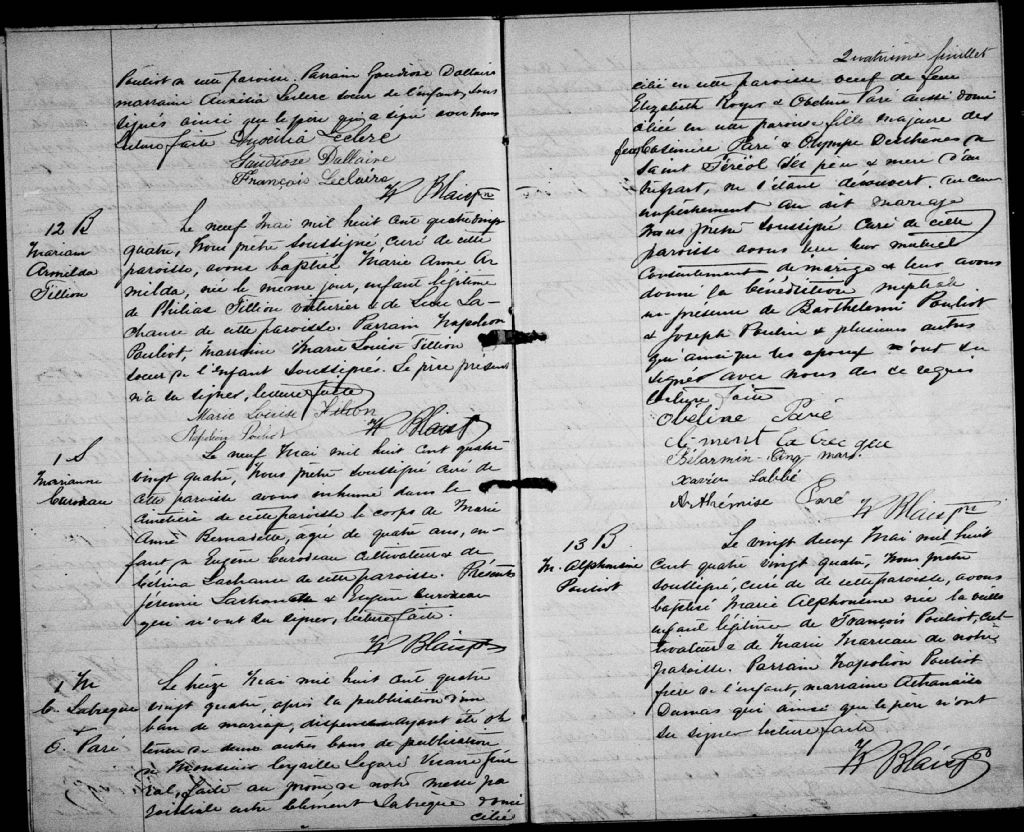 Pouliot de cette paroisse. Parrain Gaudiose Dallaire
marraine Auxilia Leclerc soeur de l'enfant, sous
signés ainsi que le pere qui a signé avec nous
Lecture faite Auxilia Leclerc
Gaudiose Dallaire
François Leclaire
Blais ptre
12 B
Mariann
Armilda
Fillion
Le neuf Mai mil huit cent quatre vingt
quatre, Nous prêtre soussigné, curé de cette
paroisse, avons baptisé Marie Anne Ar
milda, née le même jour, enfant légitime
de Philias Fillion voiturier & de La
chance de cette paroisse. Parrain Napoleon
Pouliot, Marraine Marie Louise Fillion
soeur de l'enfant soussignés. Le père présent
n'a su signer, lecture faite
Marie Louise Filion
Napoléon Pouliot
Blais ptre
1 S
Marianne
Curodeau
Le neuf Mai mil huit cent quatre
vingt quatre, Nous prêtre soussigné curé de
cette paroisse avons inhumé dans le
cimetière de cette paroisse le corps de Marie
Anne Bernadette, agée de quatre ans, en
fant de Eugène Curodeau cultivateur & de
Célina Lachance de cette paroisse. Présents
Jérémie Lachance & Eugène Curodeau
qui n'ont su signer, lecture faite.
Blais ptre
1 M
C. Labreque
&
O. Paré
Le treize Mai mil huit cent quatre
vingt quatre, après la publication d'un
ban de mariage, dispense ayant été ob
tenue de deux autres bans de publication
de Monsieur Cyrille Legaré Vicaire Géné
ral, faite au prône de notre messe pa
roissiale entre Clément Labreque domi
cilié
Quatrième feuillet
cilié en cette paroisse veuf de feue
Elizabeth Royer & Obeline Paré aussi domi
ciliée en cette paroisse fille majeure de
feu Casimire Paré & Olympe Deschênes de
Saint Féréol ses père & mere d'au
tre part, ne s'étant découvert aucun
empêchement au dit mariage
Nous prêtre soussigné Curé de cette
paroisse avons reçu leur mutuel
consentement de mariage & leur avons
donné la bénédiction nuptiale
en presence de Barthelemi Pouliot
& Joseph Poulin & plusieurs autres
qui ainsi que les epoux n'ont su
signer avec nous de ce requis
lecture faite
Obéline Paré
Clément La brecque
Bélarmin Cinq mars
Xavier Labbé
Arthémise Paré
Blais ptre
13 B
M. Alphonsine
Pouliot
Le vingt deux Mai mil huit
cent quatre vingt quatre, Nous prêtre
soussigné, curé de de cette paroisse, avons
baptisé Marie Alphonsine née la veille
enfant légitime de François Pouliot, cul
tivateur & de Marie Marceau de notre
paroisse. Parrain Napoléon Pouliot
frere de l'enfant, marraine Athanaïse
Dumas qui ainsi que le pere n'ont
su signer lecture faite
Blais ptre